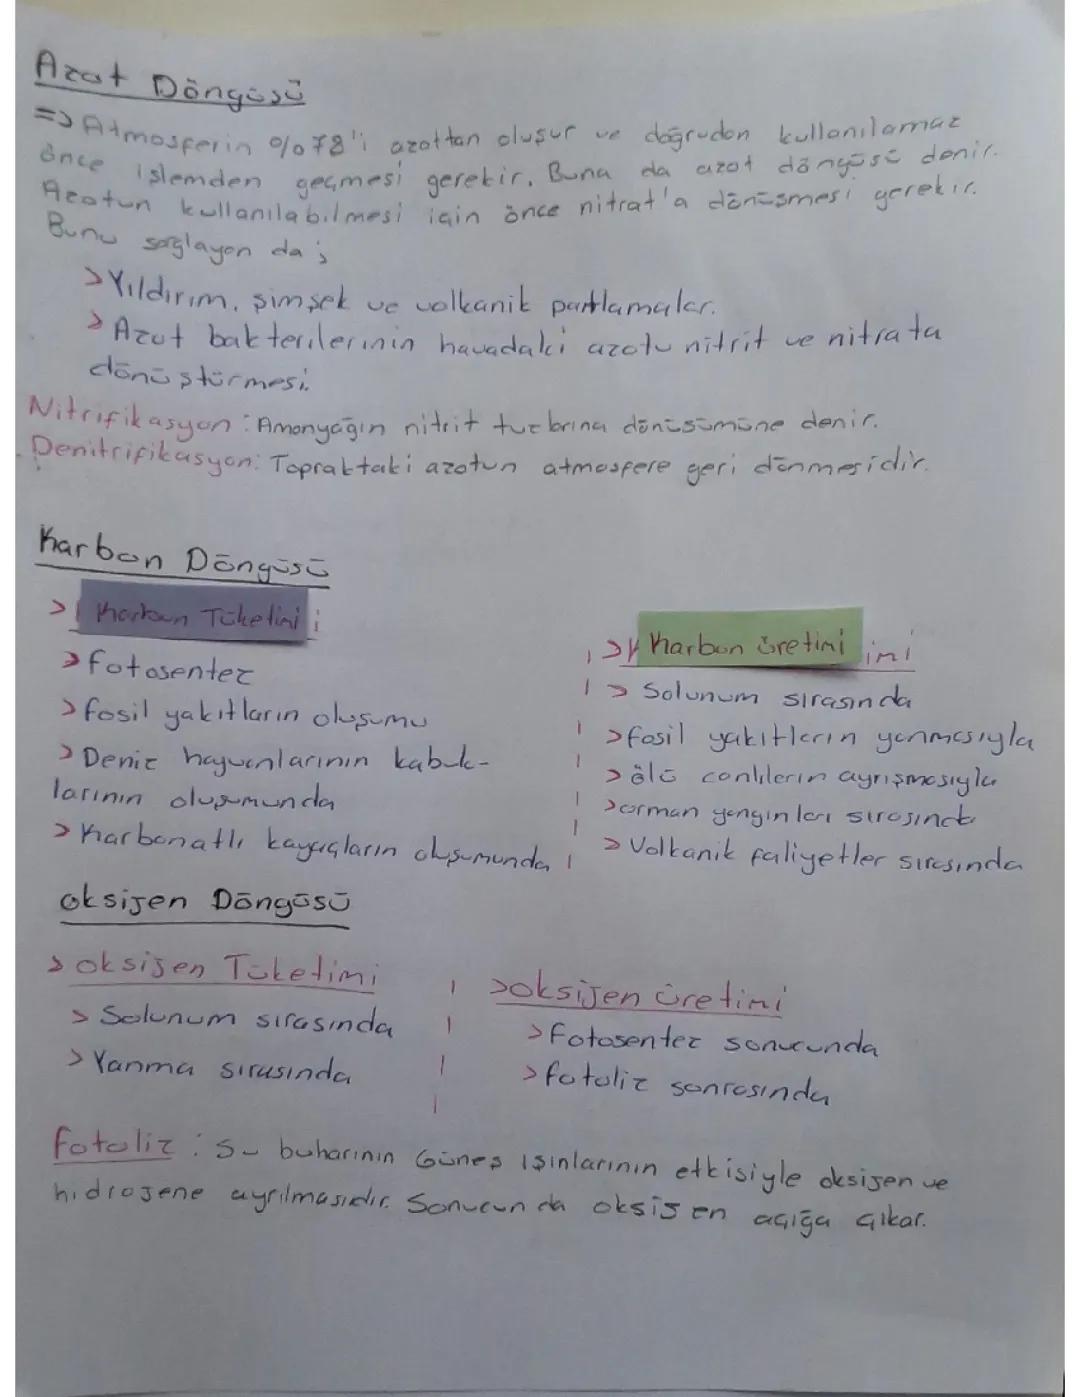 Azot Döngüsü
=> Atmosferin %78'i azottan oluşur ve doğrudan kullanılamaz
önce işlemden geçmesi gerekir. Buna da azot döngüsü denir.
Azotun kullanılabilmesi için önce nitrat'a dönüşmesi gerekir.
Bunu sağlayan da ;
> Yıldırım, şimşek ve volkanik patlamalar.
> Azot bakterilerinin havadaki azotu nitrit ve nitrata
dönüştürmesi.
Nitrifikasyon : Amonyağın nitrit tuzlarına dönüşümüne denir.
Denitrifikasyon: Topraktaki azotun atmosfere geri dönmesidir.
Karbon Döngüsü
> Karbon Tüketimi
> fotosentez
> fosil yakıtların oluşumu
> Deniz hayvanlarının kabuk-
larının oluşumunda
> Karbonatlı kayaçların oluşumunda
> Karbon üretimi imi
> Solunum sırasında
> fosil yakıtların yanmasıyla
> ölü canlıların ayrışmasıyla
> orman yangınları sırasında
> Volkanik faliyetler sırasında
oksijen Döngüsü
> oksijen Tüketimi
> Solunum sırasında
> Yanma sırasında
> oksijen üretimi
> Fotosentez sonucunda
> fotoliz sonrasında
Fotoliz : Su buharının Güneş ışınlarının etkisiyle oksijen ve
hidrojene ayrılmasıdır. Sonucunda oksijen açığa çıkar.